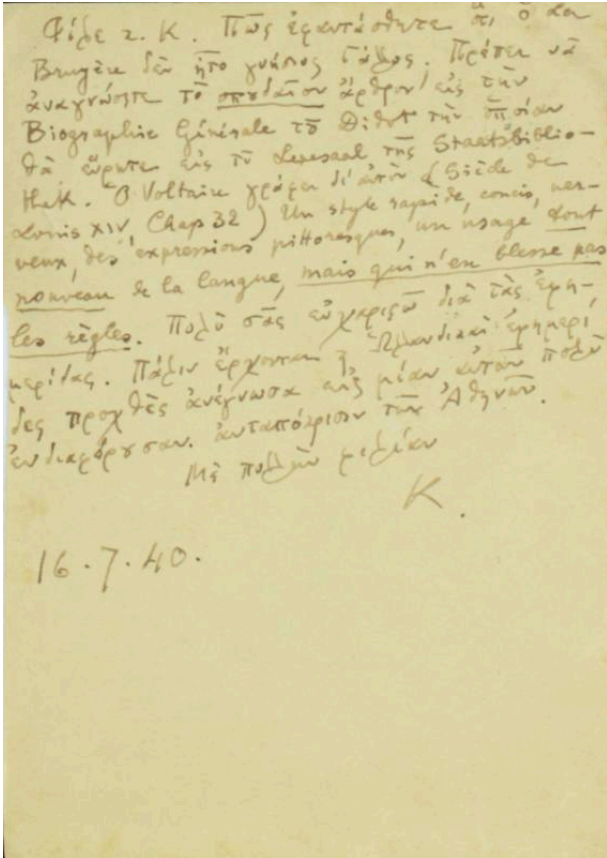 Φίλε κ. Κ. Πῶς ἐφαντάσθητε ὅτι ὁ Λα
Bruyère δὲν ἦτο γνήσιος Γάλλος. Πρέπει νὰ
ἀναγνώσητε τὸ σπουδαῖον ἄρθρον εἰς τὴν
Biographie Générale τοῦ Didot τὴν ὁποίαν
θὰ εὕρητε εἰς τὸ Lesesaal τῆς Staatsbiblio-
thek. Ὁ Voltaire γράφει δι' αὐτὸν (Siècle de
Louis XIV, Chap 32) Un style rapide, concis, ner-
veux, des expressions pittoresques, un usage tout
nouveau de la langue, mais qui n'en blesse pas
les règles. Πολὺ σᾶς εὐχαριστῶ διὰ τὰς ἐφη-
μερίδας. Πάλιν ἔρχονται Ὁλλανδικαὶ ἐφημερί
δες προχθὲς ἀνέγνωσα εἰς μίαν αὐτῶν πολὺ
ἐνδιαφέρουσαν ἀνταπόκρισιν τῶν Ἀθηνῶν.
Μὲ πολλὴν φιλίαν
Κ.
16.7.40.